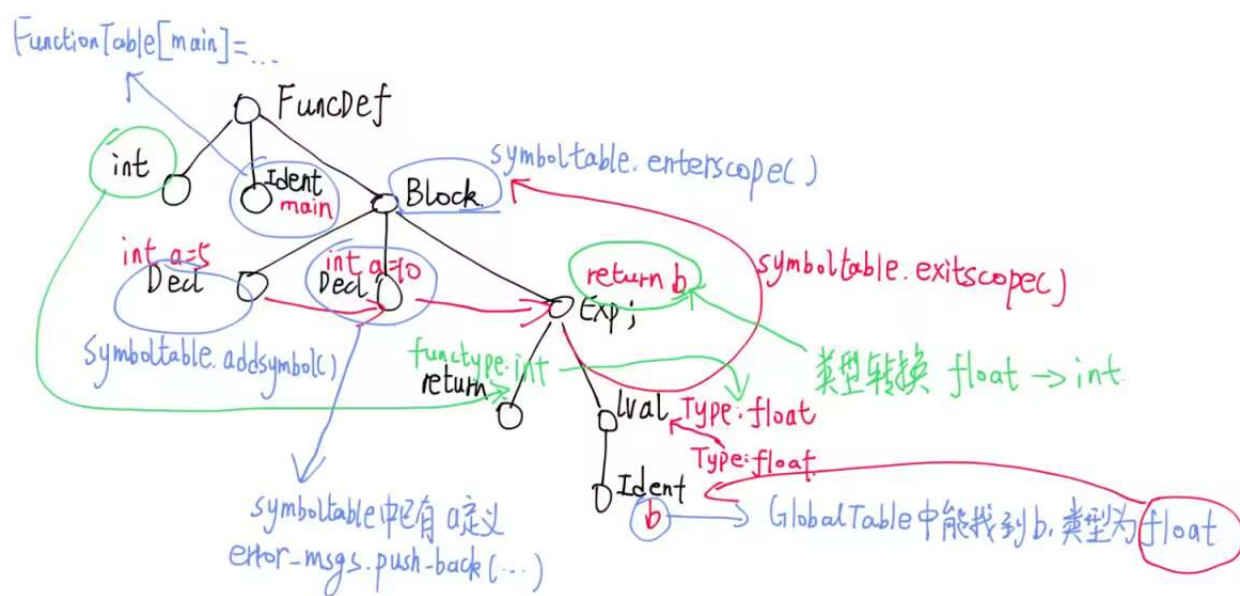 FunctionTable[main]=...
FuncDef
int
Ident
main
Block
symboltable.enterscope()
int a=5
Decl
int a=10
Decl
return b
Exp;
symboltable.exitscope()
symboltable.addsymbol()
functype:int
return
类型转换 float→int
lval
Type:float
Type:float
Ident
b
GlobalTable中能找到b,类型为float
symboltable中已有a定义
error_msgs.push-back(...)